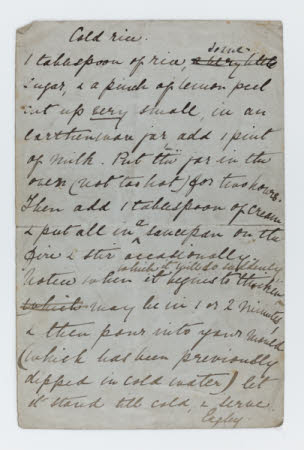 Cold rice.
1 tablespoon of rice, some
sugar, & a pinch of lemon peel
cut up very small, in an
earthenware jar add 1 pint
of milk. Put the jar in the
oven (not too hot) for two hours.
Then add 1 tablespoon of cream
& put all in a saucepan on the
fire & stir occasionally
which it will do suddenly
Notice when it begins to thicken
which may be in 1 or 2 minutes
& then pour into your mould
(which has been previously
dipped in cold water) let
it stand till cold, & serve.